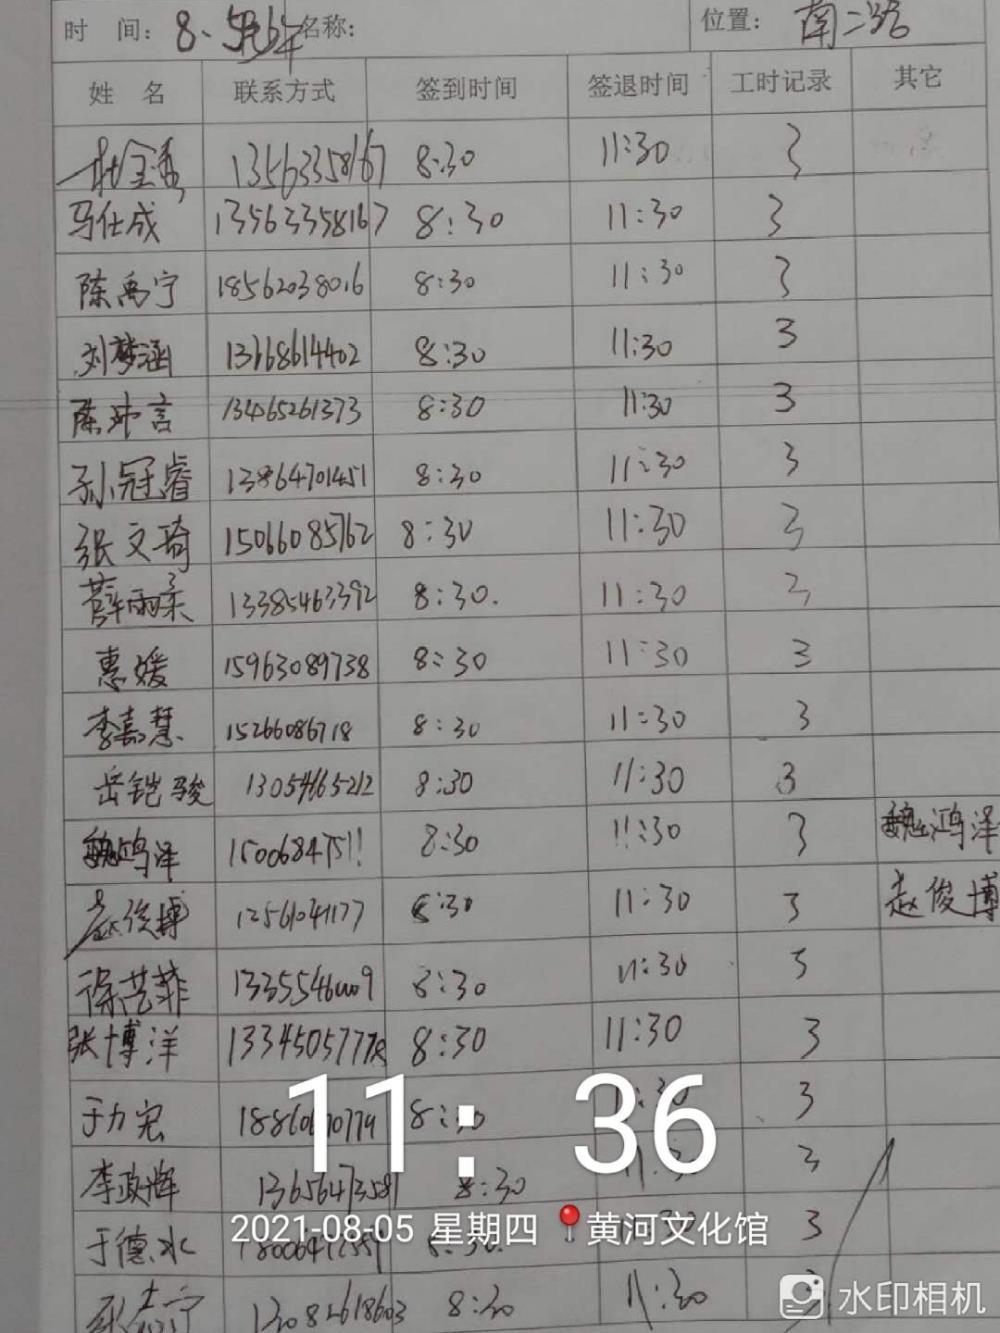 时 间: 8.5 名称: 位置: 南二路
姓 名 联系方式 签到时间 签退时间 工时记录 其它
杜金香 13563358167 8:30 11:30 3
马仕成 13563358167 8:30 11:30 3
陈禹宁 18562038016 8:30 11:30 3
刘梦涵 13768614402 8:30 11:30 3
陈冲言 13465261373 8:30 11:30 3
孙冠睿 13864701451 8:30 11:30 3
张文琦 15066085762 8:30 11:30 3
薛雨柔 13385463392 8:30. 11:30 3
惠媛 15963089738 8:30 11:30 3
李嘉慧 15266086718 8:30 11:30 3
岳铠骏 13054665212 8:30 11:30 3
魏鸿泽 15006847511 8:30 11:30 3 魏鸿泽
赵俊博 13561041177 8:30 11:30 3 赵俊博
徐艺菲 8:30 11:30 3
张博洋 13345057778 8:30 11:30 3
于力宏 8:30 11:30 3
李政辉 13656473581 8:30 11:30 3
于德水 8:30 3
13082618603 8:30 11:30
11:36
2021-08-05 星期四 黄河文化馆
水印相机